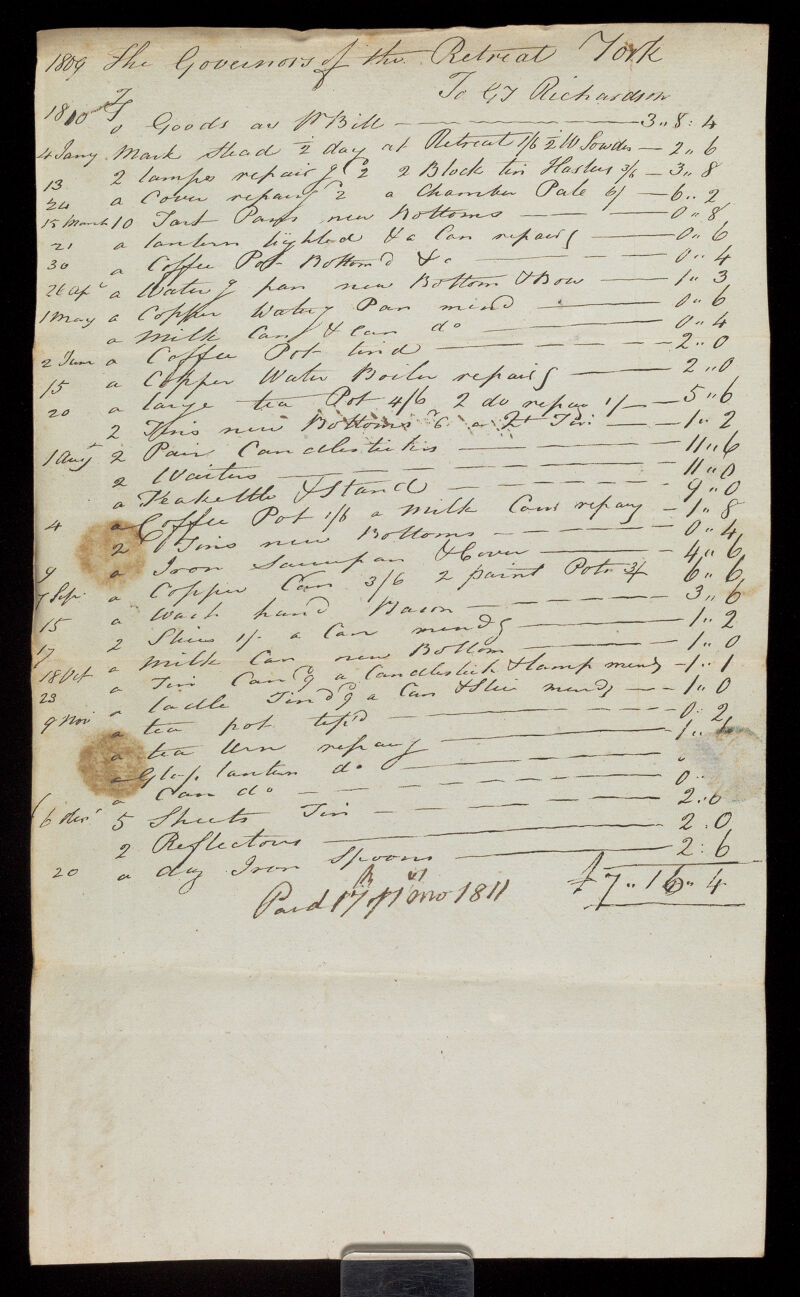 1809 The Governors of the Retreat York
To GT Richardson
1810 To Goods as pr Bill — 3,, 8: 4
4 Jany Mark Stead ½ day at Retreat 1/6 ½ lb Sowder — 2,, 6
13 2 lamps repairg 2 2 Block tin Hasters 3/6 — 3,, 8
24 a Cover repairg 2 a Chamber Pale 6/ — 6,, 2
15 March 10 Tart Pans new Bottoms — 0,, 8
21 a lantern lighted & a Can repairg — 0,, 6
30 a Coffee Pot Bottomd &c — 0,, 4
26 Apl a Waterg pan new Bottom & Bow — 1,, 3
1 May a Copper Waterg Pan mend — 0,, 6
a Milk Can & Can do — 0,, 4
2 June a Coffee Pot tind — 2,, 0
15 a Copper Water Boiler repairg — 2,, 0
20 a large tea Pot 4/6 2 do repair 1/ — 5,, 6
2 Tins new Bottoms 6 a Tin — 1,, 2
1 Augt 2 Pair Candlesticks — 11,, 6
2 Waiters — 11,, 0
a Teakettle & Stand — 9,, 0
4 a Coffee Pot 1/6 a Milk Can repairg — 1,, 8
2 Tins new Bottoms — 0,, 4
9 a Iron Saucepan & Cover — 4,, 6
7 Sepr a Copper Can 3/6 2 paint Pots 3/ — 6,, 6
15 a Wash hand Bason — 3,, 6
17 2 Slices 1/- a Can mendg — 1,, 2
18 Oct a Milk Can new Bottom — 1,, 0
23 a Tin Can 9 a Candlestick & lamp mendg — 1,, 1
9 Nov a ladle Tind 9 a Can & Slice mendg — 1,, 0
a tea pot tipd — 0: 2
a tea Urn repairg — 1,,
a Glass lantern do — 0
a Can do — 0,,
6 Decr 5 Sheets Tin — 2,, 6
2 Reflectors — 2,, 0
20 a doz Iron Spoons — 2: 6
£7,, 16,, 4
Paid 17 of 1 mo 1811